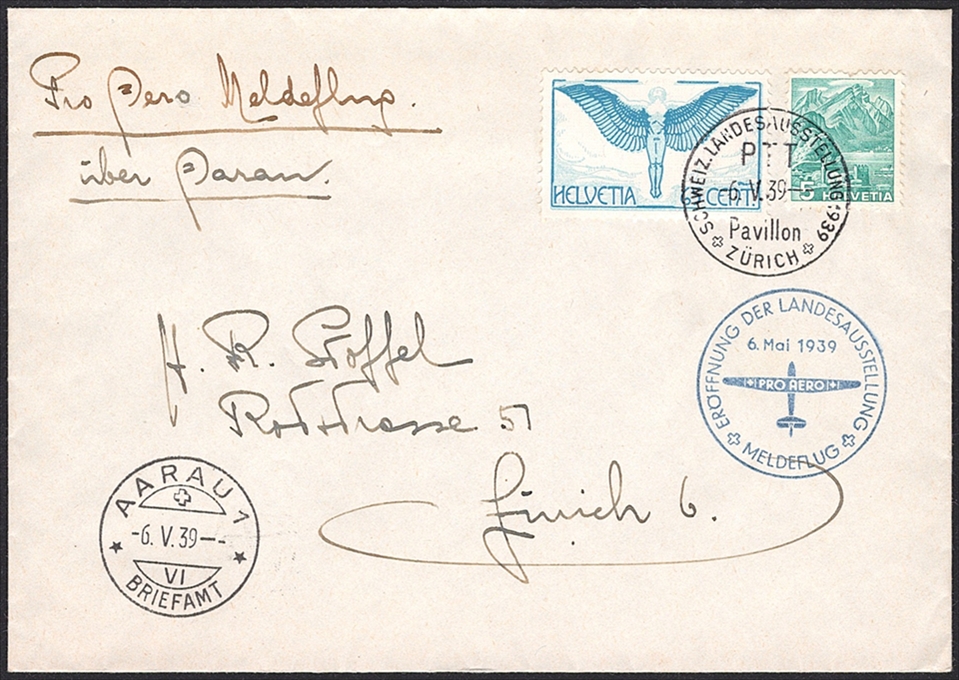 Pro Aero Meldeflug.
über Aarau.
HELVETIA
CENT.
5
HELVETIA
SCHWEIZ. LANDESAUSSTELLUNG 1939
PTT
-6. V. 39--
Pavillon
ZÜRICH
ERÖFFNUNG DER LANDESAUSSTELLUNG
6. Mai 1939
PRO AERO
MELDEFLUG
H. R. Stoffel
Rotstrasse 51
Zürich 6.
AARAU 1
-6. V. 39--
VI
BRIEFAMT